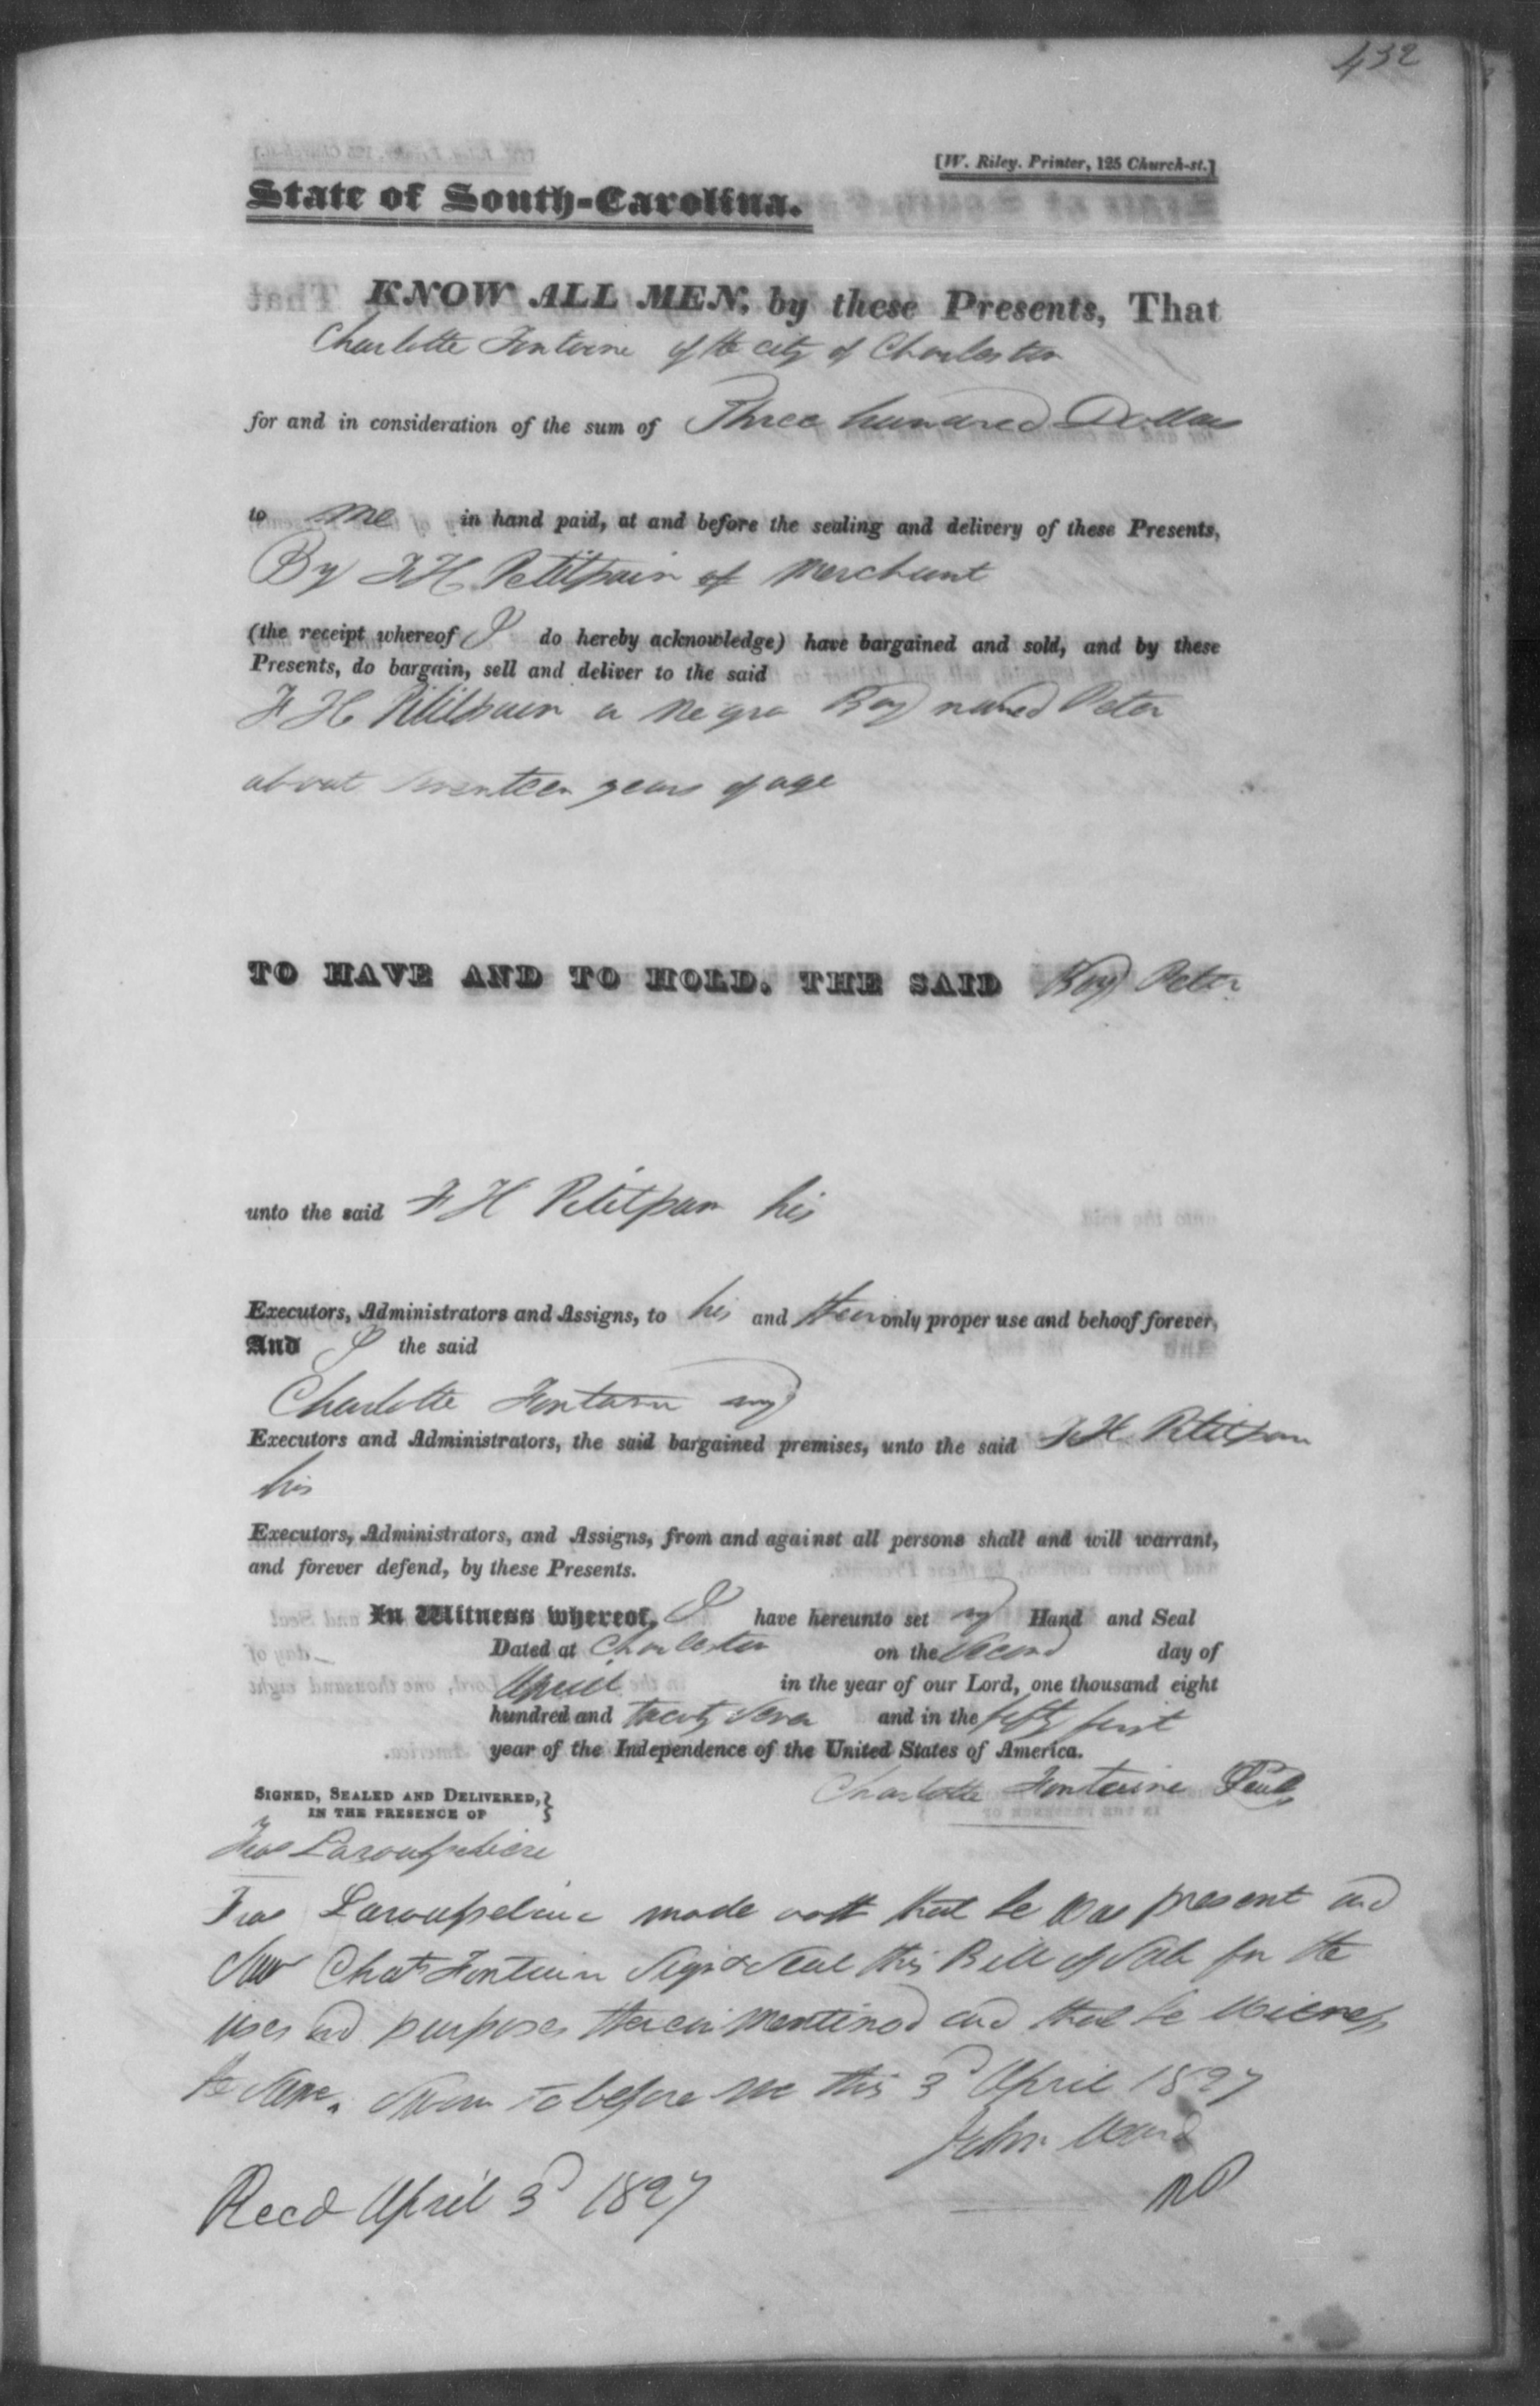 432
[W. Riley. Printer, 125 Church-st.]
State of South-Carolina.
KNOW ALL MEN, by these Presents, That
Charlotte Fontaine of the city of Charleston
for and in consideration of the sum of Three hundred Dollars
to me in hand paid, at and before the sealing and delivery of these Presents,
By F H Petitpain of Merchant
(the receipt whereof I do hereby acknowledge) have bargained and sold, and by these
Presents, do bargain, sell and deliver to the said
F H Petitpain a Negro Boy named Peter
about seventeen years of age
TO HAVE AND TO HOLD. THE SAID Boy Peter
unto the said F H Petitpain his
Executors, Administrators and Assigns, to his and their only proper use and behoof forever,
And I the said
Charlotte Fontain my
Executors and Administrators, the said bargained premises, unto the said F H Petitpain
his
Executors, Administrators, and Assigns, from and against all persons shall and will warrant,
and forever defend, by these Presents.
In Witness whereof, I have hereunto set my Hand and Seal
Dated at Charleston on the Second day of
April in the year of our Lord, one thousand eight
hundred and twenty seven and in the fifty first
year of the Independence of the United States of America.
Charlotte Fontaine Seal
SIGNED, SEALED AND DELIVERED,}
IN THE PRESENCE OF
Fras
Fras made oath that he was present and
saw Chate Fontain Sign & Seal this Bill of Sale for the
uses and purposes therein mentioned and that he witness
the same. Sworn to before me this 3d April 1827
John Ward
NP
Recd April 3d 1827